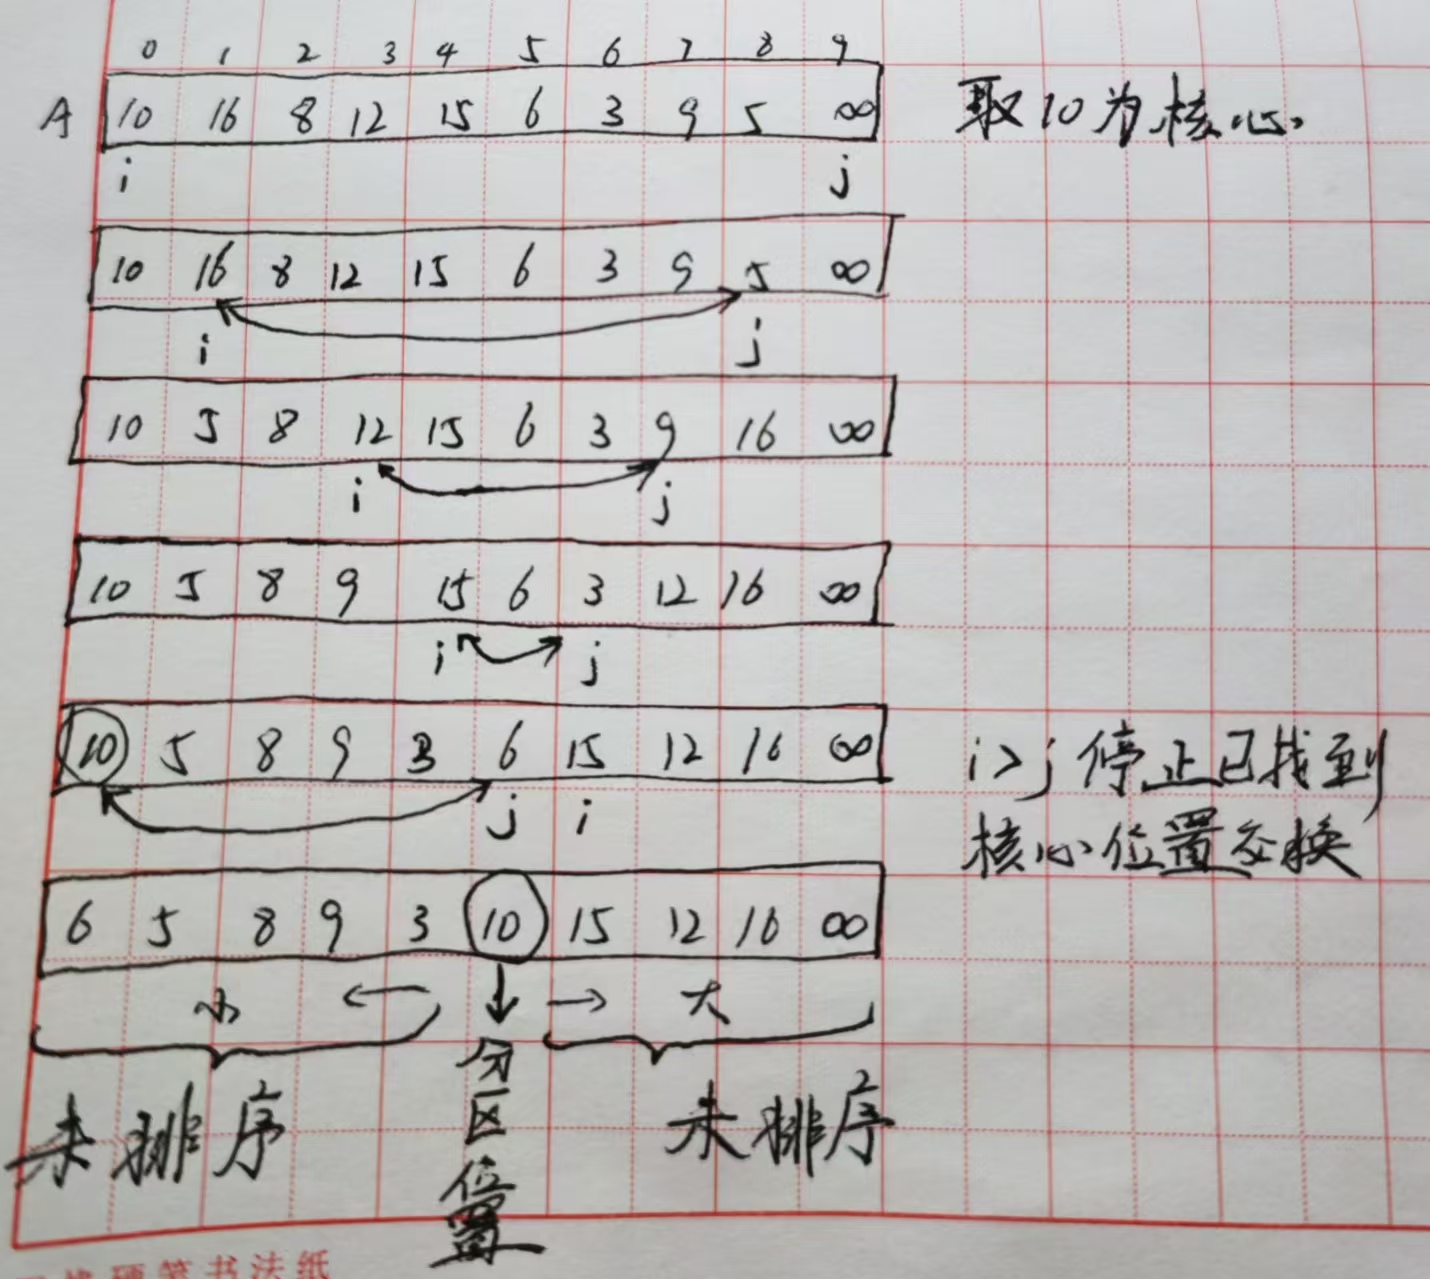 0 1 2 3 4 5 6 7 8 9
A 10 16 8 12 15 6 3 9 5 ∞ 取10为核心.
i j
10 16 8 12 15 6 3 9 5 ∞
i j
10 5 8 12 15 6 3 9 16 ∞
i j
10 5 8 9 15 6 3 12 16 ∞
i j
10 5 8 9 3 6 15 12 16 ∞ i>j停止已找到
j i 核心位置交换
6 5 8 9 3 10 15 12 16 ∞
小 ← ↓ → 大
未排序 分区位置 未排序
硬笔书法纸